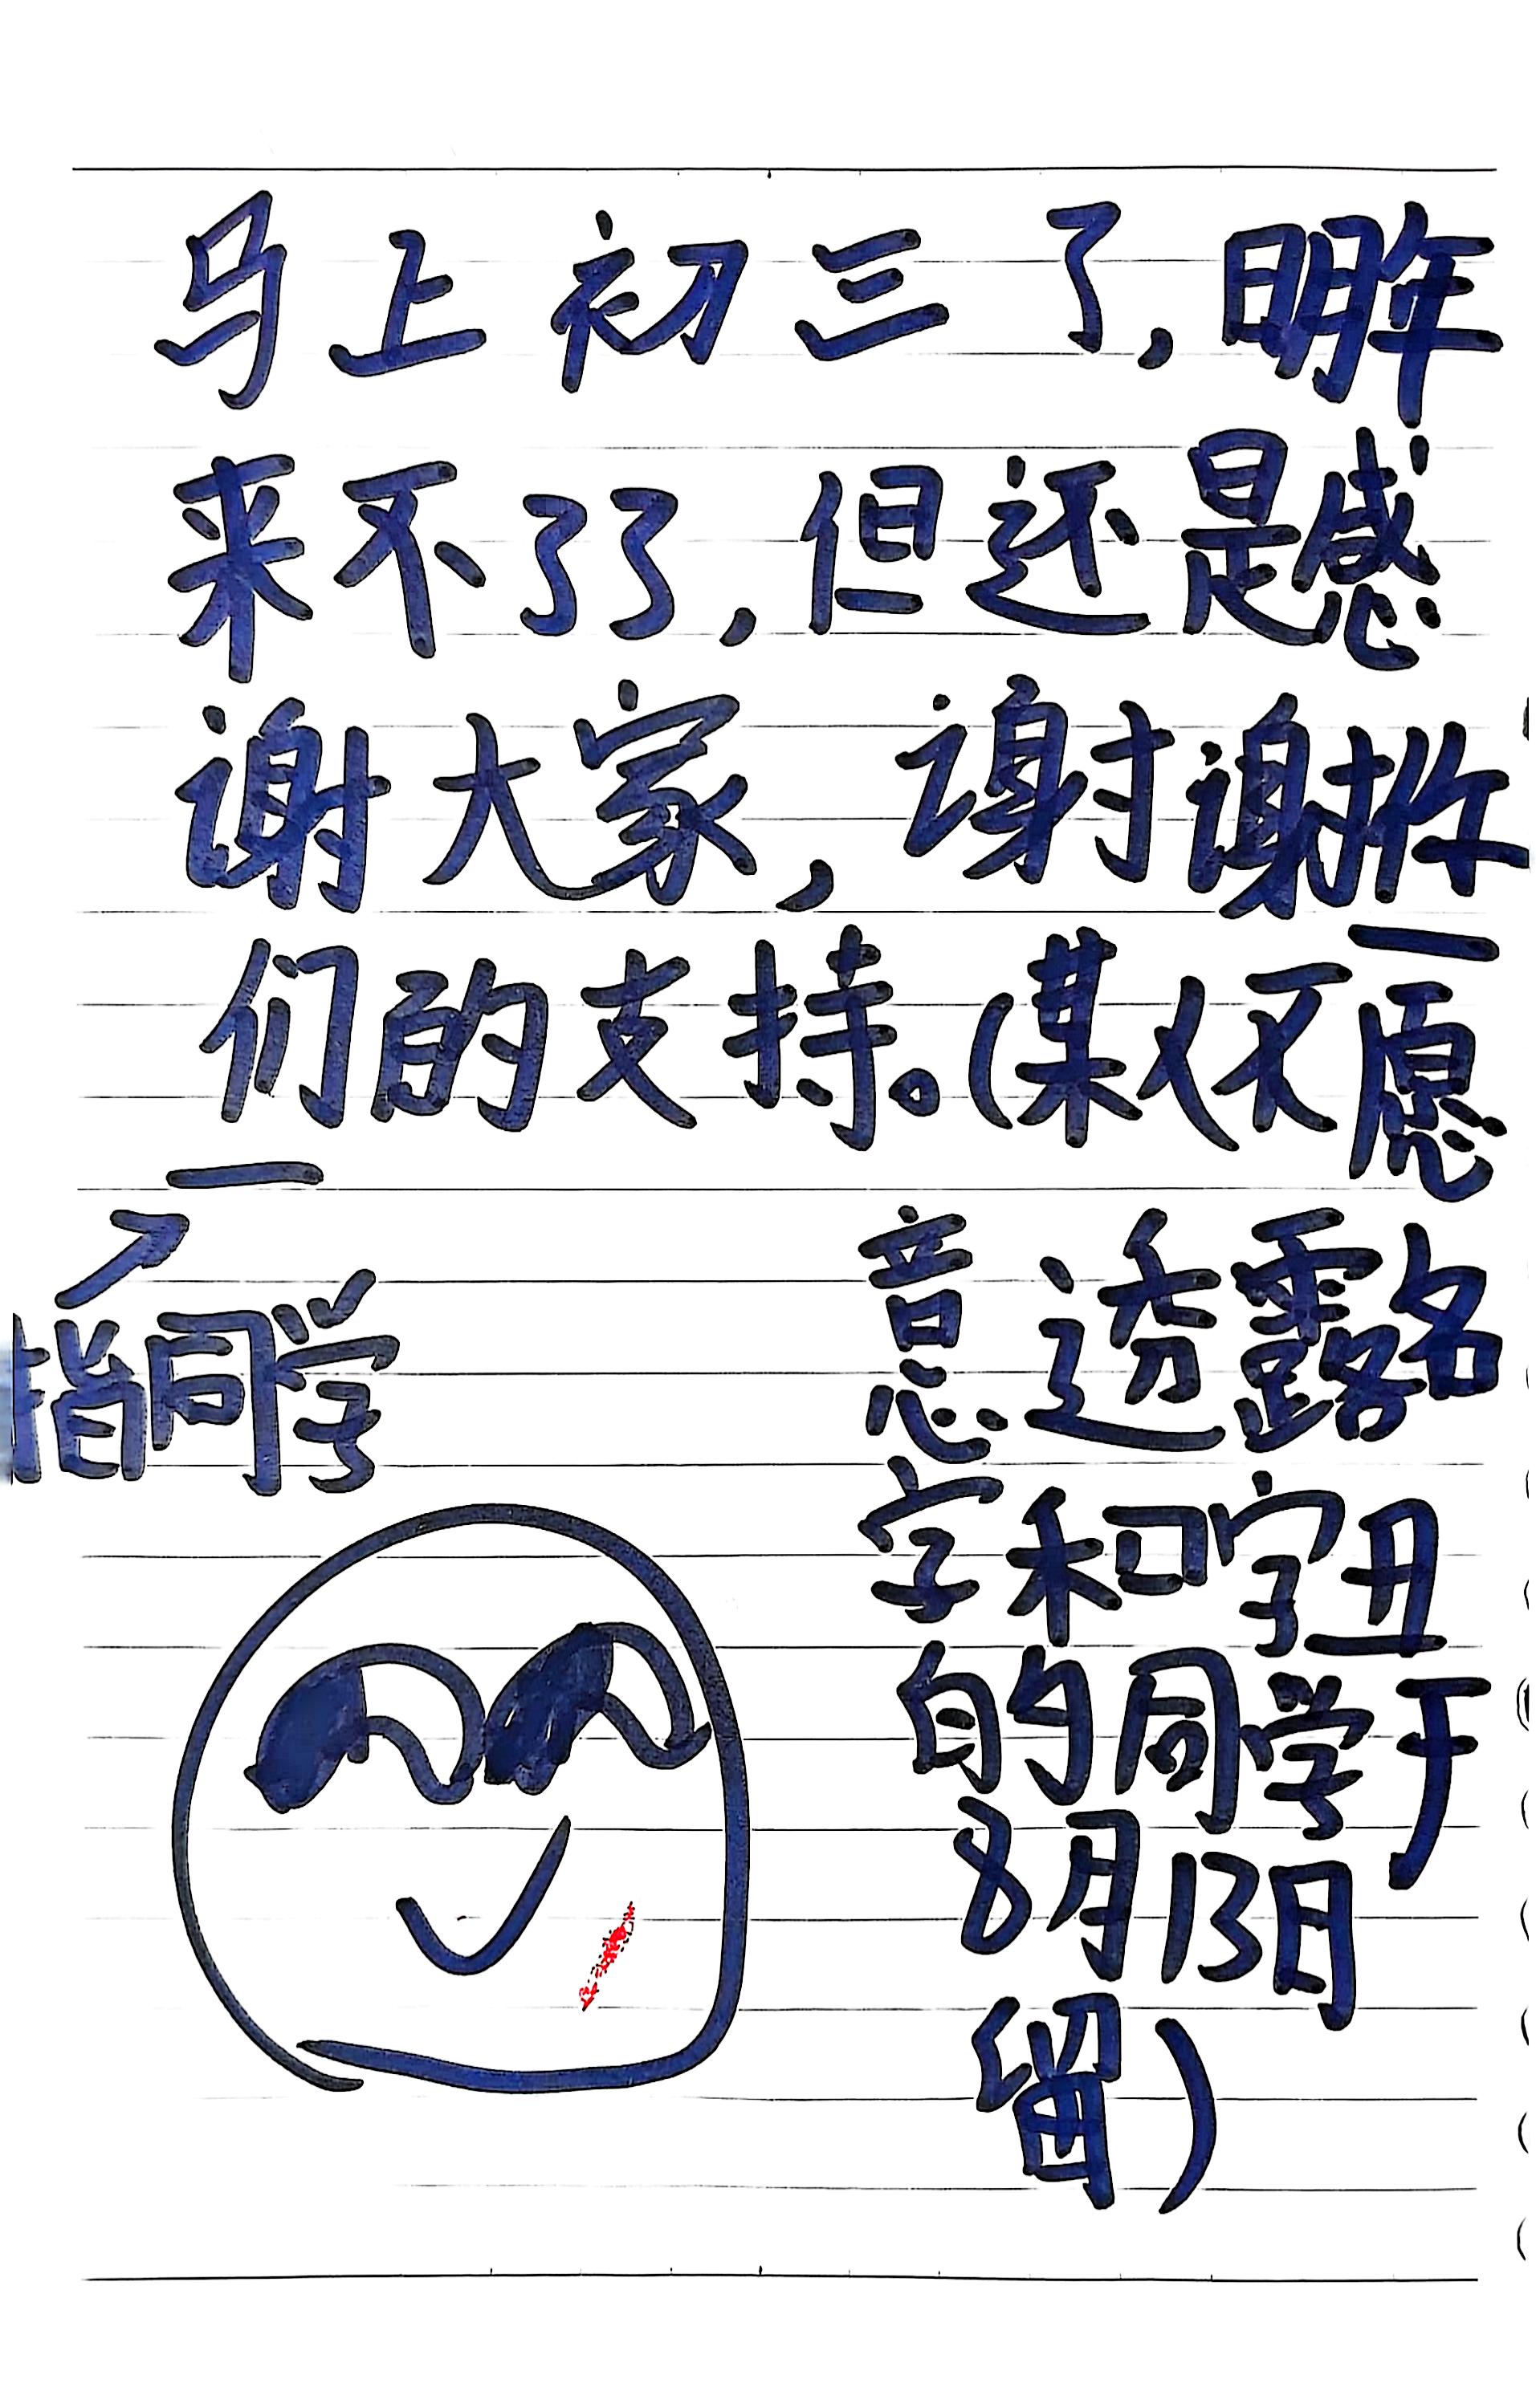 马上初三了,明年
来不了了,但还是感
谢大家,谢谢你
们的支持。(某人不愿
意透露名
字和字丑
的同学于
8月13日
留)
指同学